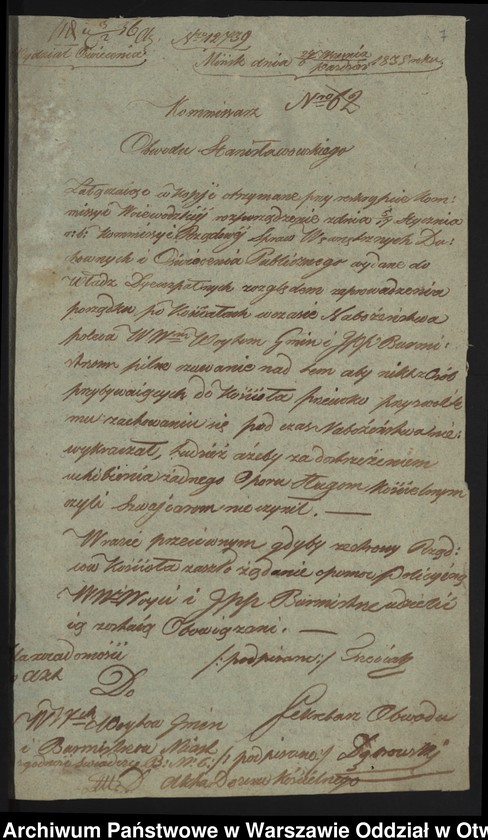 Nro 12739
Wydział Oświecenia
Mińsk dnia 1835 roku
Kommissarz Nro 62
Obwodu Stanisławowskiego
Załączając w kopji otrzymane przy reskrypcie Kom=
missyi Woiewodzkiej rozporządzenie z dnia Stycznia
r: b: Kommissyi Rządowej Spraw Wewnętrznych Du=
chownych i Oświecenia Publicznego wydane do
Władz Dyecezalnych względem zaprowadzenia
porządku po Kościołach w czasie Nabożeństwa
poleca WWm Woytom Gmin i JPP Burmi=
strzom pilne czuwanie nad tem aby nikt z Osób
przybywających do Kościoła przeciwko przyzwoite
mu zachowaniu się pod czas Nabożeństwa nie
wykraczał, tudzież ażeby za dostrzeżeniem
uchybienia żadnego Oporu Sługom Kościelnym
czyli Szwajcarom nie czynił. —
W razie przeciwnym gdyby ze strony Rząd=
ców Kościoła zaszło żądanie o pomoc Policyjną
WW Woyci i JPP Burmistrze udzielić
ią zostaią Obowiązani. —
/: podpisano :/
Do
Woytów Gmin Sekretarz Obwodu
i Burmistrzów Miast
/: podpisano :/ Dąbrowski
Akta Dozoru Kościelnego
Archiwum Państwowe w Warszawie Oddział w Otw